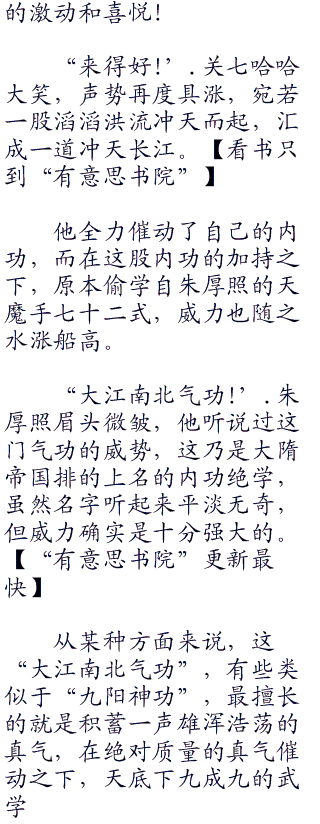 的激动和喜悦!
“来得好!’.关七哈哈
大笑，声势再度具涨，宛若
一股滔滔洪流冲天而起，汇
成一道冲天长江。【看书只
到“有意思书院”】
他全力催动了自己的内
功，而在这股内功的加持之
下，原本偷学自朱厚照的天
魔手七十二式，威力也随之
水涨船高。
“大江南北气功!’.朱
厚照眉头微皱，他听说过这
门气功的威势，这乃是大隋
帝国排的上名的内功绝学，
虽然名字听起来平淡无奇，
但威力确实是十分强大的。
【“有意思书院”更新最
快】
从某种方面来说，这
“大江南北气功”，有些类
似于“九阳神功”，最擅长
的就是积蓄一声雄浑浩荡的
真气，在绝对质量的真气催
动之下，天底下九成九的武
学